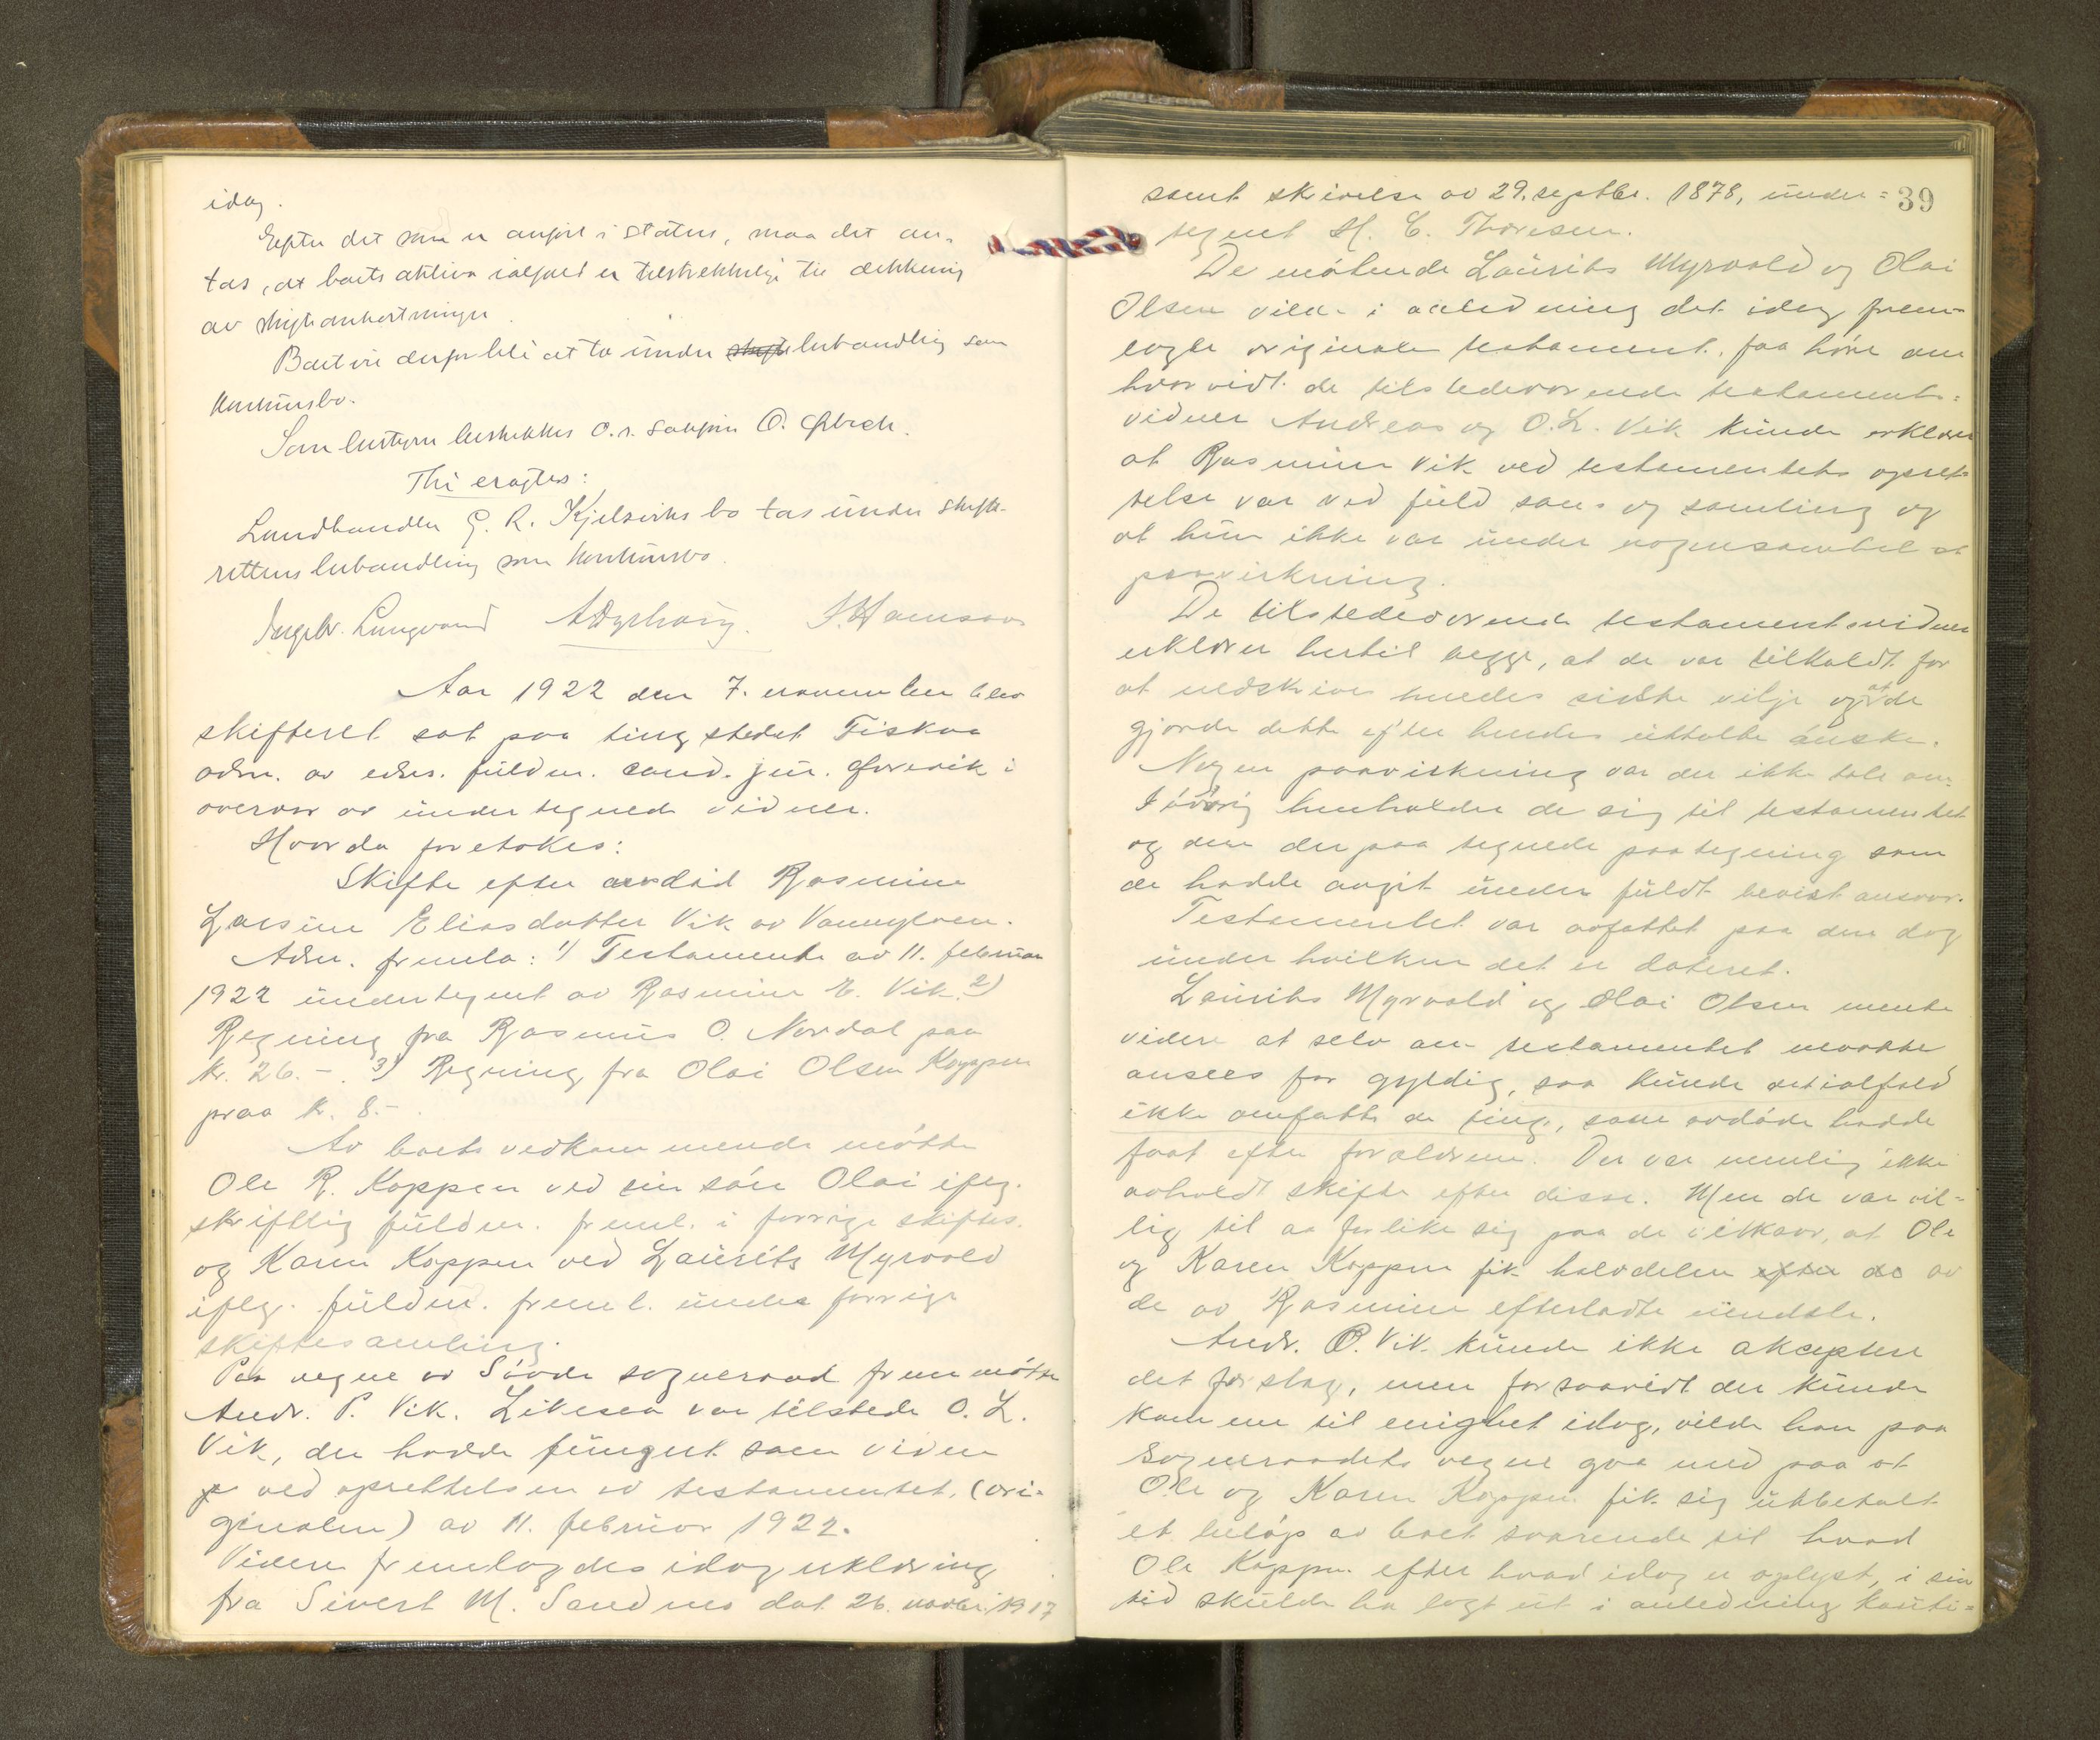 idag.
Efter det som er anført i status, maa det an-
tas, at boets aktiva ialfald er tilstrækkelige til dækning
av skifteomkostninger.
Boet vil derfor bli at ta under skifte behandling som
konkursbo.
Som bestyrer beskikkes o.r. sakfører O.
Thi eragtes:
Landhandler G. R. Kjelsviks bo tas under skifte-
rettens behandling som konkursbo.
Ingebr. Lungvand J. Hamson
Aar 1922 den 7. november blev
skifteret sat paa tingstedet Fiskaa
adm. av edsv. fuldm. cand. jur. Gjørvik i
overvær av undertegnede vidner.
Hvorda foretokes:
Skifte efter avdød Rasmine
Larsine Eliasdatter Vik av Vannylven.
Adm. fremla: 1) Testamente av 11. februar
1922 undertegnet av Rasmine E. Vik. 2)
Regning fra Rasmus O. Nordal paa
kr. 26.-. 3) Regning fra Olai Olsen Koppen
paa kr. 8.-.
Av boets vedkommende møtte
Ole R. Koppen ved sin søn Olai iflg.
skriftlig fuldm. freml. i forrige skiftes.
og Karen Koppen ved Laurits Myrvold
iflg. fuldm. freml. under forrige
skiftesamling.
Paa vegne av Søvde sogneraad fremmøtte
Andr. P. Vik. Likesaa var tilstede O. L.
Vik, der hadde fungert som vidne
p ved oprettelsen av testamentet, (ori-
ginalen) av 11. februar 1922.
Videre fremlagdes idag erklæring
fra Sivert M. Sandnes dat. 26. novbr. 1917
39
samt skrivelse av 29. septbr. 1878, under=
tegnet H. C. Thoresen.
De møtende Laurits Myrvold og Olai
Olsen vilde i anledning det idag frem-
lagte originale testament, faa høre om
hvorvidt de tilstedeværende testaments=
vidner Andreas og O.L. Vik kunde erklære
at Rasmine Vik ved testamentets opret-
telse var ved fuld sans og samling og
at hun ikke var under nogensomhelst
paavirkning.
De tilstedeværende testamentsvidner
erklærer hertil begge, at de var tilkaldt for
at nedskrive hendes sidste vilje og at de
gjorde dette efter hendes uttalte ønske.
Nogen paavirkning var der ikke tale om.
I øvrig henholder de sig til testamentet
og den derpaa tegnede paategning som
de hadde avgit under fuldt bevist ansvar.
Testamentet var avfattet paa den dag
under hvilken det er dateret.
Laurits Myrvold og Olai Olsen mente
videre at selv om testamentet maatte
ansees for gyldig, saa kunde det ialfald
ikke omfatte de ting, som avdøde hadde
faat efter forældrene. Der var nemlig ikke
avholdt skifte efter disse. Men de var vil=
lig til aa forlike sig paa de vilkaar, at Ole
og Karen Koppen fik halvdelen efter de av
de av Rasmine efterladte eiendele.
Andr. P. Vik kunde ikke akceptere
det forslag, men forsaavidt der kunde
komme til enighet idag, vilde han paa
sogneraadets vegne gaa med paa at
Ole og Karen Koppen fik sig utbetalt
et beløp av boet svarende til hvad
Ole Koppen efter hvad idag er oplyst, i sin
tid skulde ha lagt ut i anledning kauti=